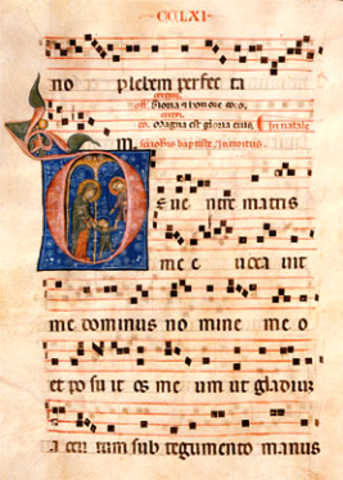 CCLXI
no plebem perfec ta
off. Gloria & honore. co.
co. Magna est gloria eius. In natale
m. sci iohis baptiste. Introitus.
E ue ntre matris
me e uoca uit
me dominus no mine me o
et po su it os me um ut gladium
a cu tum sub tegumento manus